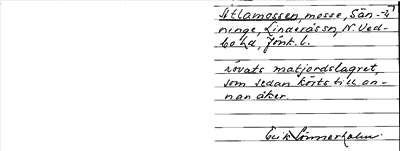 Åtlamossen, mosse, Sän-
ninge, Linderås sn, N. Ved-
bo hd, Jönk. l.
rövats matjordslagret,
som sedan körts till an-
nan åker.
Erik Lönnerholm.